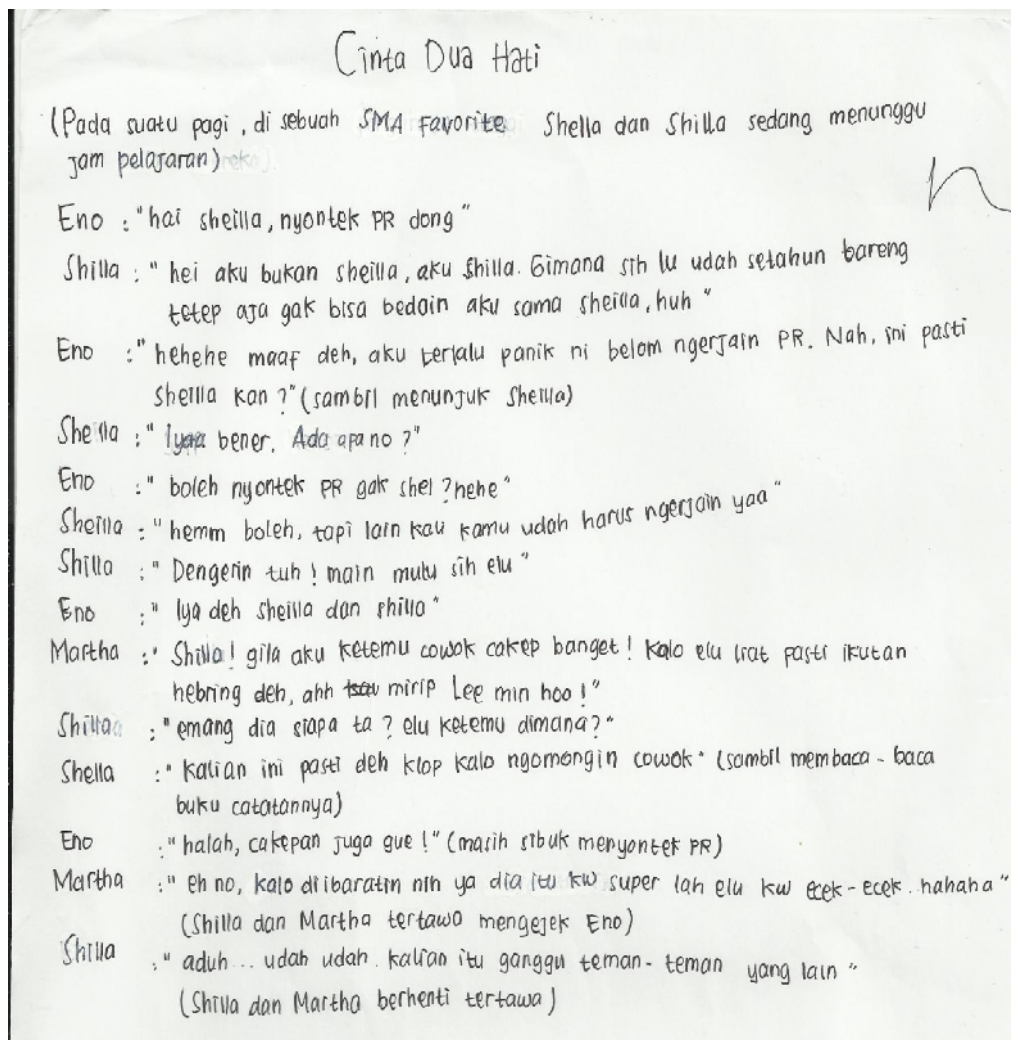 Cinta Dua Hati
(Pada suatu pagi, di sebuah SMA Favorite Shella dan Shilla sedang menunggu
jam pelajaran)
Eno : "hai sheilla, nyontek PR dong"
Shilla : "hei aku bukan sheilla, aku shilla. Gimana sih lu udah setahun bareng
tetep aja gak bisa bedain aku sama sheilla, huh"
Eno : "hehehe maaf deh, aku terlalu panik ni belom ngerjain PR. Nah, ini pasti
sheilla kan ?" (sambil menunjuk Sheilla)
Sheilla : "Iyaa bener. Ada apa no ?"
Eno : "boleh nyontek PR gak shel ? hehe"
Sheilla : "hemm boleh, tapi lain kali kamu udah harus ngerjain yaa"
Shilla : "Dengerin tuh ! main mulu sih elu"
Eno : "Iya deh sheilla dan shilla"
Martha : "Shilla ! gila aku ketemu cowok cakep banget ! Kalo elu liat pasti ikutan
hebring deh, ahh mirip Lee min hoo !"
Shilla : "emang dia siapa ta ? elu ketemu dimana ?"
Shella : "Kalian ini pasti deh klop kalo ngomongin cowok" (sambil membaca - baca
buku catatannya)
Eno : "halah, cakepan juga gue !" (masih sibuk menyontek PR)
Martha : "eh no, kalo diibaratin nih ya dia itu kw super lah elu kw ecek-ecek. hahaha"
(Shilla dan Martha tertawa mengejek Eno)
Shilla : "aduh... udah udah. kalian itu ganggu teman-teman yang lain"
(Shilla dan Martha berhenti tertawa)